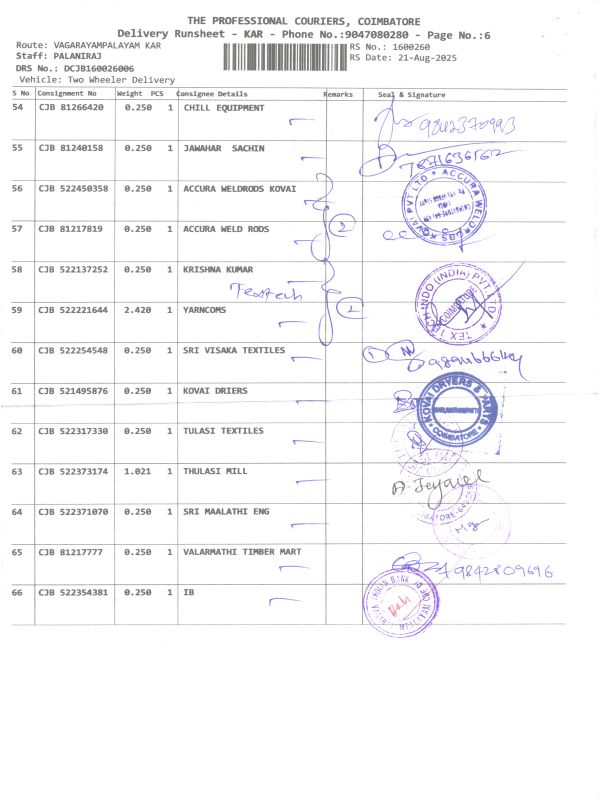 THE PROFESSIONAL COURIERS, COIMBATORE
Delivery Runsheet - KAR - Phone No.:9047080280 - Page No.:6
Route: VAGARAYAMPALAYAM KAR RS No.: 1600260
Staff: PALANIRAJ RS Date: 21-Aug-2025
DRS No.: DCJB160026006
Vehicle: Two Wheeler Delivery
S No Consignment No Weight PCS Consignee Details Remarks Seal & Signature
54 CJB 81266420 0.250 1 CHILL EQUIPMENT 9842370993
55 CJB 81240158 0.250 1 JAWAHAR SACHIN
56 CJB 522450358 0.250 1 ACCURA WELDRODS KOVAI
ACCURA WELDRODS KOVAI PVT LTD
57 CJB 81217819 0.250 1 ACCURA WELD RODS 2
58 CJB 522137252 0.250 1 KRISHNA KUMAR
Textech
TEX TECH INDO (INDIA) PVT. LTD.
COIMBATORE
59 CJB 522221644 2.420 1 YARNCOMS 2
60 CJB 522254548 0.250 1 SRI VISAKA TEXTILES 1
61 CJB 521495876 0.250 1 KOVAI DRIERS
KOVAI DRYERS & PARTS
COIMBATORE
62 CJB 522317330 0.250 1 TULASI TEXTILES
63 CJB 522373174 1.021 1 THULASI MILL A. Jeyavel
64 CJB 522371070 0.250 1 SRI MAALATHI ENG
65 CJB 81217777 0.250 1 VALARMATHI TIMBER MART 9842809696
66 CJB 522354381 0.250 1 IB
INDIAN BANK